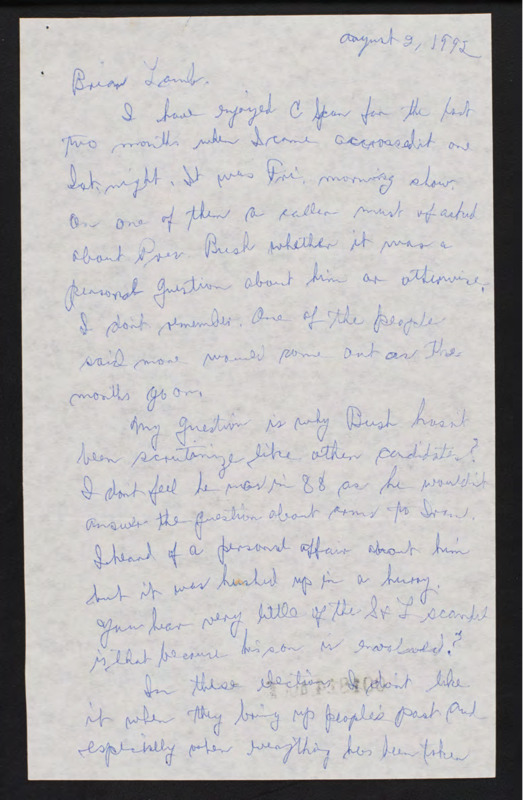 August 2, 1992
Brian Lamb.
I have enjoyed C Span for the last
two months when I came accrossedit one
lat. night. It was Fri. morning show.
On one of them a caller must of asked
about Pres. Bush whether it was a
personal question about him or otherwise,
I dont remember. One of the people
said more would come out as the
months go on.
My question is why Bush hasnt
been scrutinize like other candidates?
I dont feel he was in 88 as he wouldnt
answer the question about arms to Iran.
I heard of a personal affair about him
but it was hushed up in a hurry.
You hear very little of the S & L scandel
is that because his son is involved?
In these elections I dont like
it when they bring up people's past and
especially when everything has been taken